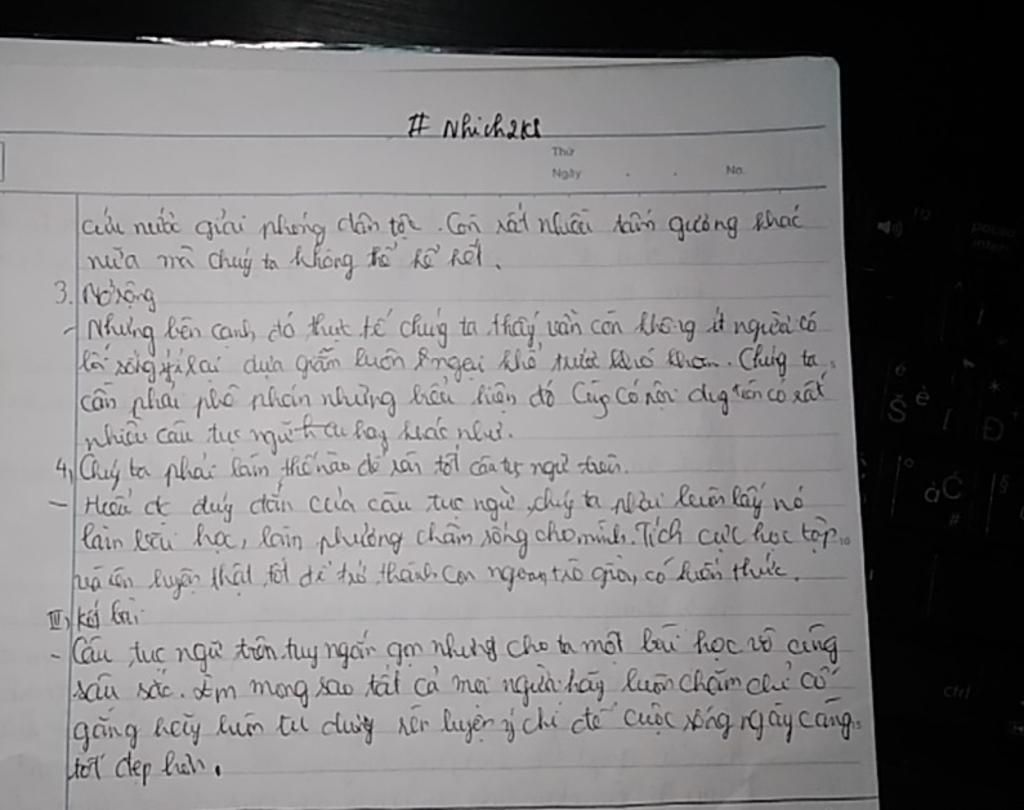 # Nhich2k8
Thứ
Ngày . . No.
cứu nước giải phóng dân tộc. Còn rất nhiều tấm gương khác
nữa mà chúg ta không thể kể hết.
3. Mở rộng
- Nhưng bên cạnh đó thực tế chúg ta thấy vẫn còn không ít người có
lối sống ỷ lại dựa dẫm luôn ngại khó, trước khó khăn. Chúng ta
cần phải phê phán những biểu hiện đó Cùg có nội dug trên có rất
nhiều câu tục ngữ hay khác như.
4, Chúg ta phải làm thế nào để tốt câu tục ngữ trên.
- Hiểu đc đúg đắn của câu tục ngữ, chúg ta phải luôn lấy nó
làm bài học, làm phương châm sống cho mình. Tích cực học tập
và rèn luyện thật tốt để trở thành con ngoan trò giỏi, có kiến thức.
III, Kết bài:
- Câu tục ngữ trên tuy ngắn gọn nhưng cho ta một bài học vô cùng
sâu sắc. Em mong sao tất cả mọi người hãy luôn chăm chỉ cố
gắng hãy luôn tu dưỡng rèn luyện ý chí để cuộc sống ngày càng
tốt đẹp hơn.
pause
inter
Š
é
è
Đ
à
Ć
#
§
*
ctrl